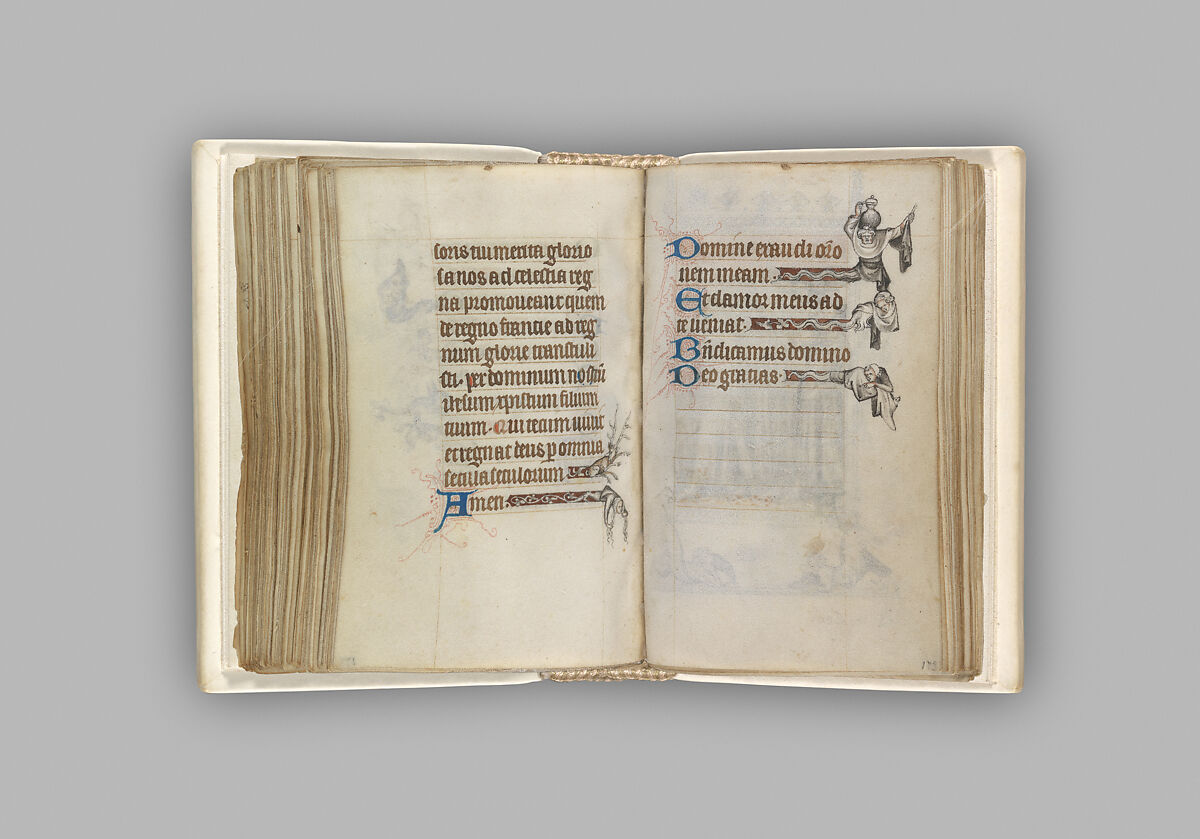 soris tui merita glorio
sa nos ad celestia reg
na promoveant quem
de regno francie ad reg
num glorie transtuli
sti. per dominum nostrū
ihesum xpistum filium
tuum. Qui tecum vivit
et regnat deus p omnia
secula seculorum
Amen.
Domine exaudi orō
nem meam.
Et clamor meus ad
te veniat.
Bn̄dicamus domino
Deo gratias.